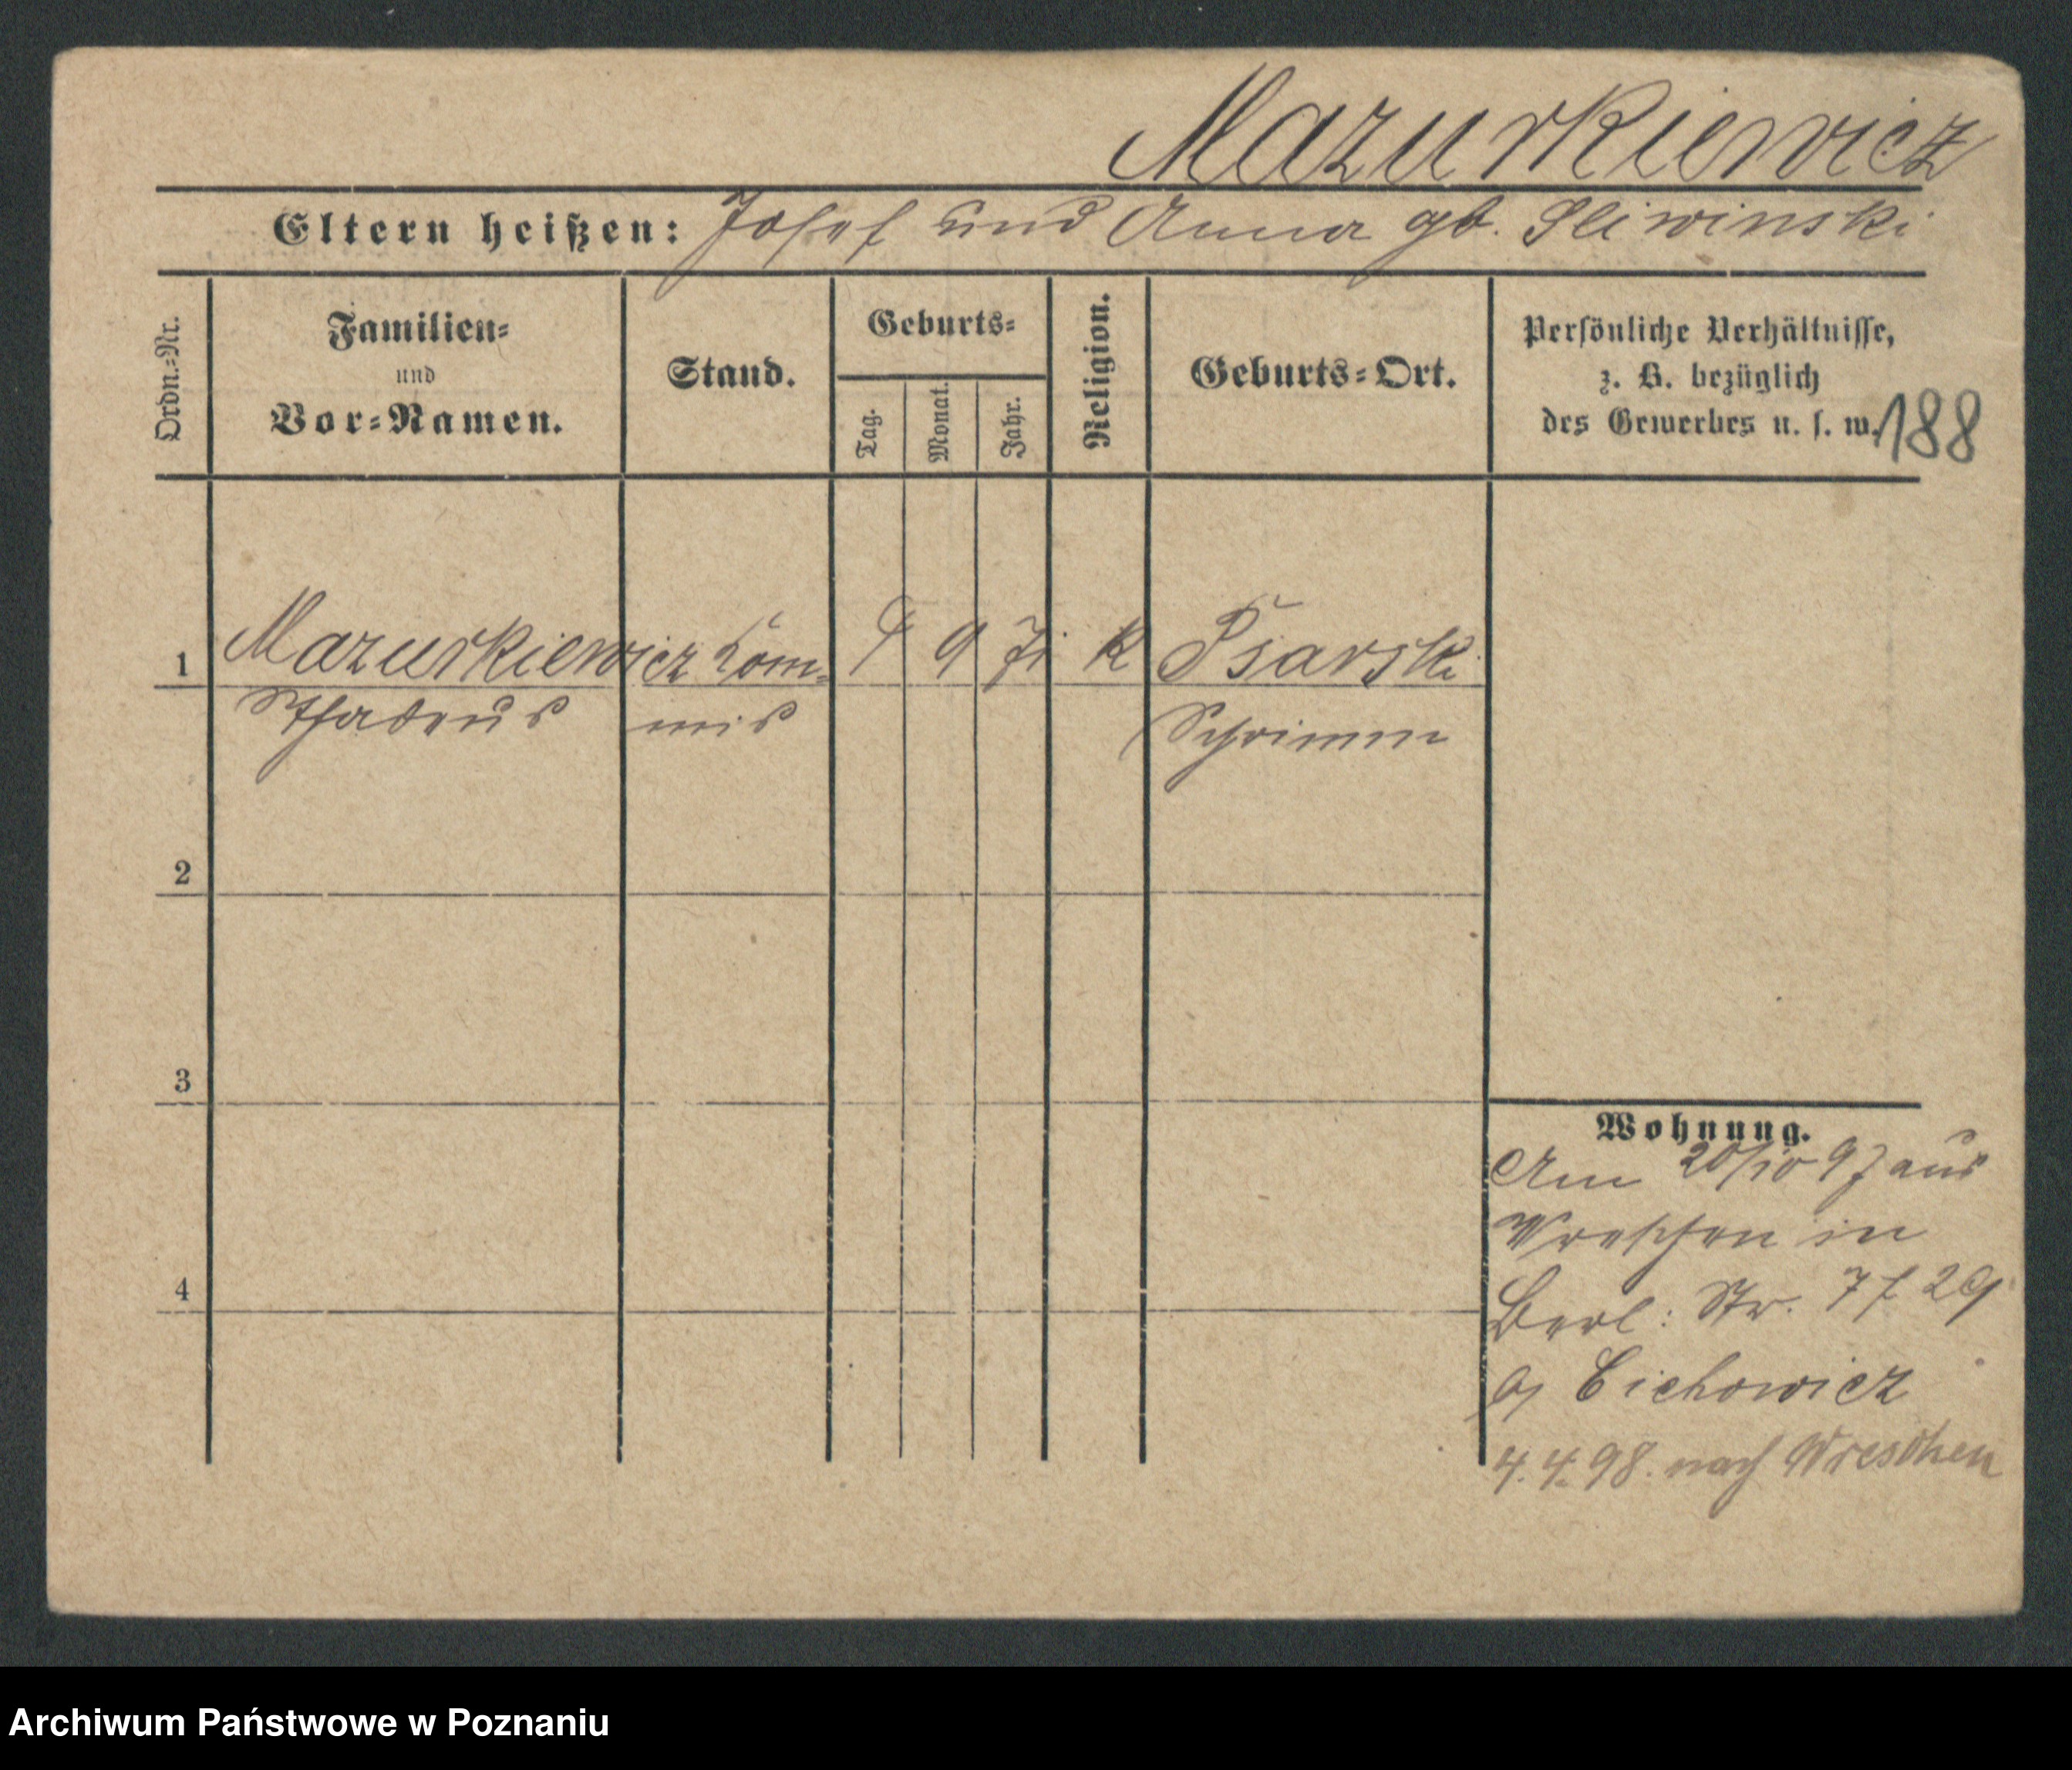 Mazurkiewicz
Eltern heißen: Josef und Anna gb. Sliwinski
Ordn.=Nr.
Familien=
und
Vor=Namen.
Stand.
Geburts=
Tag.
Monat.
Jahr.
Religion.
Geburts=Ort.
Persönliche Verhältnisse,
z. B. bezüglich
des Gewerbes u. s. w.
188
1 Mazurkiewicz Kom= 9 71 k Psarski
Thadeus mis Schrimm
2
3
4
Wohnung.
Am 20/10 97 aus
Wreschen in
Berl: Str. 7 f 29
b/ Cichowicz
4.4.98. nach Wreschen
Archiwum Państwowe w Poznaniu